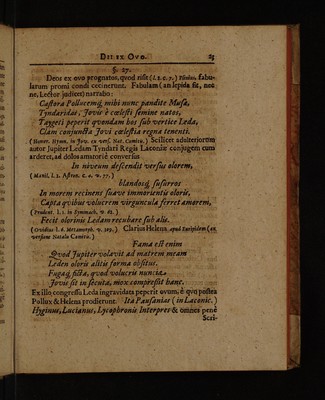 DII EX OVO. 25
§. 27.
Deos ex ovo prognatos, qvod risit (l. 1. c. 7.) Plinius, fabu-
larum promi condi cecinerunt. Fabulam (an lepida sit, nec
ne, Lector judicet) narrabo:
Castora Pollucemq; mihi nunc pandite Musæ,
Tyndaridas, Jovis è cœlesti semine natos,
Taygeti peperit qvondam hos sub vertice Leda,
Clam conjuncta Jovi cœlestia regna tenenti.
(Homer. Hymn. in Jov. ex vers. Nat. Comitu.) Scilicet adulteriorum
autor Jupiter Ledam Tyndari Regis Laconiæ conjugem cum
arderet, ad dolos amatorios conversus
In niveum descendit versus olorem,
(Manil. l. 1. Astron. v. 77.)
blandosq; susurros
In morem recinens suave immorientis oloris,
Capta qvibus volucrem virguncula ferret amorem,
(Prudent. l. 1. in Symmach. v. 62.)
Fecit olorinis Ledam recubare sub alis.
(Ovidius l. 6. Metamorph. v. 109.) Clarius Helena apud Euripidem (ex
versione Natalis Comitu.)
Fama est enim
Qvod Jupiter volavit ad matrem meam
Leden oloris alitis forma obsitus.
Fugaq; ficta, qvod volucris nuncia
Jovis sit insecuta, mox compressit hanc.
Ex illo congressu Leda ingravidata peperit ovum, è qvo postea
Pollux & Helena prodierunt. Ita Pausanias (in Laconic.)
Hyginus, Lucianus, Lycophronis Interpres & omnes penè
Scri-